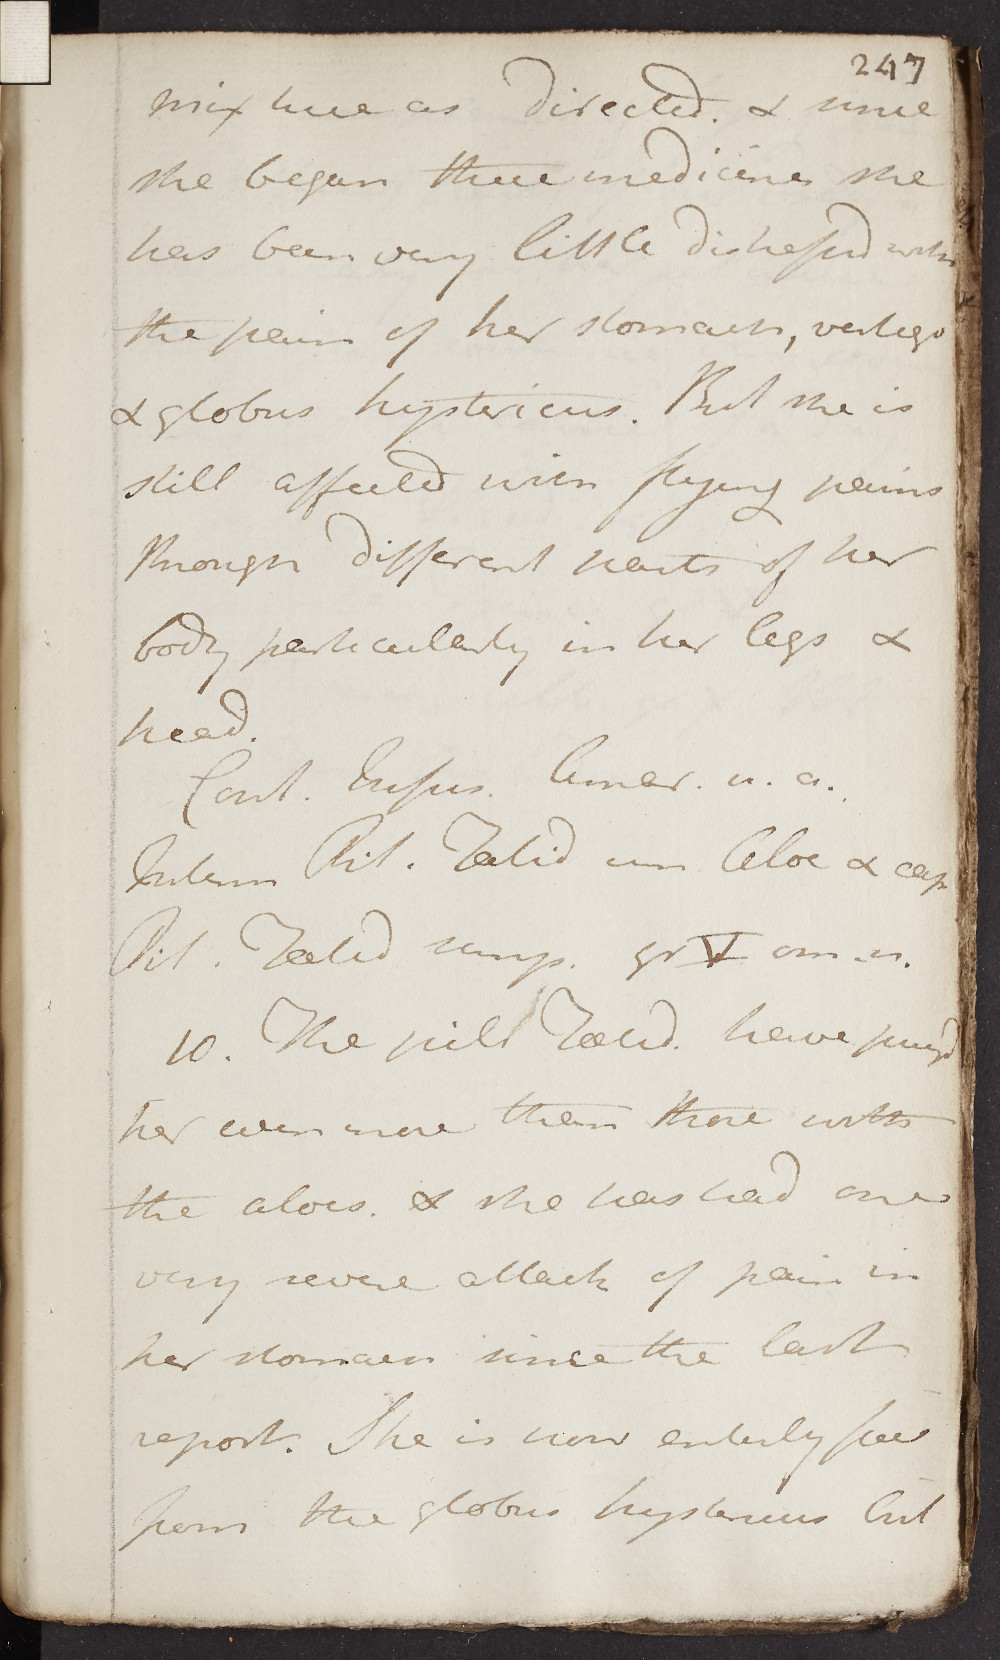 247
mixture as directed. & since
she began these medicines she
has been very little distressed with
the pain of her stomach, vertigo
& globus hystericus. But she is
still affected with flying pains
through different parts of her
body particularly in her legs &
head.
Cont. Infus. Amar. u. a.
Interm Pil. Foetid cum Aloe & cap
Pil. Foetid simp. gr V om. n.
10. The pil Foetid. have purg'd
her even more than those with
the aloes. & she has had one
very severe attack of pain in
her stomach since the last
report. She is now entirely free
from the globus hystericus but